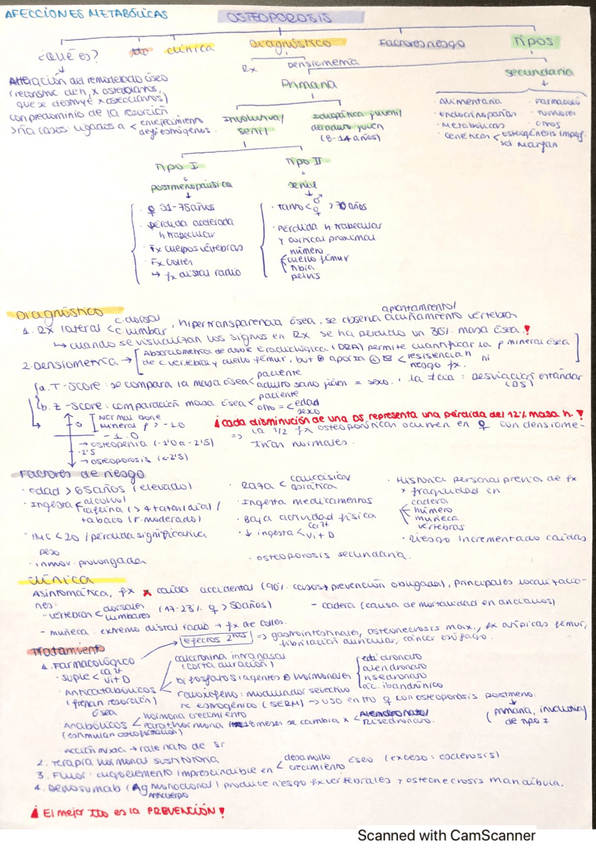 AFECCIONES METABÓLICAS
OSTEOPOROSIS
¿QUÉ ES?
clínica
Diagnóstico
Factores riesgo
Tipos
Rx
Densiometría
Alteración del remodelado óseo
con predominio de la resorción
Primaria
secundaria
Involutiva/
senil
Idiopática juvenil
adulto joven
(8-14 años)
alimentaria
endocrinopatías
metabólicas
genéticas
fármacos
tumores
otros
Tipo I
postmenopáusica
♀ 51-75 años
pérdida acelerada
h trabecular
Fx cuerpos vértebras
Fx colles
↳ fx distal radio
Tipo II
senil
> 70 años
pérdida h trabecular
y cortical proximal
húmero
cuello fémur
tibia
pelvis
Diagnóstico
1. Rx lateral < c.dorsal c.lumbar, hipertransparencia ósea, se observa acuñamiento vértebras
↳ cuando se visualizan los signos en Rx se ha perdido un 30% masa ósea!
2. Densiometría → Absorciometría de doble E radiológica (DEXA) permite cuantificar la p mineral ósea
de c. vértebras y cuello fémur, resistencia h ni riesgo fx.
a. T-score: se compara la masa ósea < paciente adulto sano joven = sexo. desviación estándar (DS)
b. Z-score: comparación masa ósea < paciente otro = < edad sexo
Normal bone
mineral p > -1.0
-1.0
→ osteopenia (-1'0 a -2'5)
-2'5
→ osteoporosis (<-2'5)
¡cada disminución de una DS representa una pérdida del 12% masa h.!
⇒ la 1/2 fx osteoporóticas ocurren en ♀ con densiome-
trías normales.
Factores de riesgo
· edad > 65 años (elevado)
· Ingesta < alcohol
cafeína (> 4 tazas/día)
tabaco (r. moderado)
· IMC < 20 / pérdida significativa
peso
· inmov. prolongada
· Raza < caucásica
asiática
· Ingesta medicamentos
· Baja actividad física
· ↓ ingesta < Ca++
vit D
· osteoporosis secundaria.
· Historia personal previa de fx
x fragilidad en
cadera
húmero
muñeca
vértebras
· Riesgo incrementado caídas
clínica
Asintomática, fx x caída accidental (90% casos → prevención obligada), principales localizacio-
nes:
- vértebras < dorsales lumbares (17-23% ♀ > 50 años)
- cadera (causa de mortalidad en ancianos)
- muñeca: extremo distal radio → fx de colles.
Tratamiento
efectos 2rios ⇒ gastrointestinales, osteonecrosis max., fx atípicas fémur,
fibrilación auricular, cáncer esófago.
1. Farmacológico
· suple < Ca++
vit D
· Anticatabólicos
(frenan resorción)
ósea
calcitonina intranasal
(corta duración)
bifosfonatos
etidronato
alendronato
risedronato
ác. ibandrónico
raloxifeno: modulador selectivo
rc estrogénico (SERM) → uso en tto ♀ con osteoporosis postmeno.
(primaria, involutiva
de tipo I
· Anabólicos < hormona crecimiento
parathormona
18 meses se cambia x < Alendronato/
Risedronato.
acción mixta → ralenato de Sr
2. Terapia hormonal sustitutoria
3. Flúor: oligoelemento imprescindible en < desarrollo crecimiento óseo (exceso: esclerosis)
4. Denosumab (Ag monoclonal) produce riesgo fx vertebrales y osteonecrosis mandíbula.
anticuerpo
¡ El mejor tto es la PREVENCIÓN !
Scanned with CamScanner